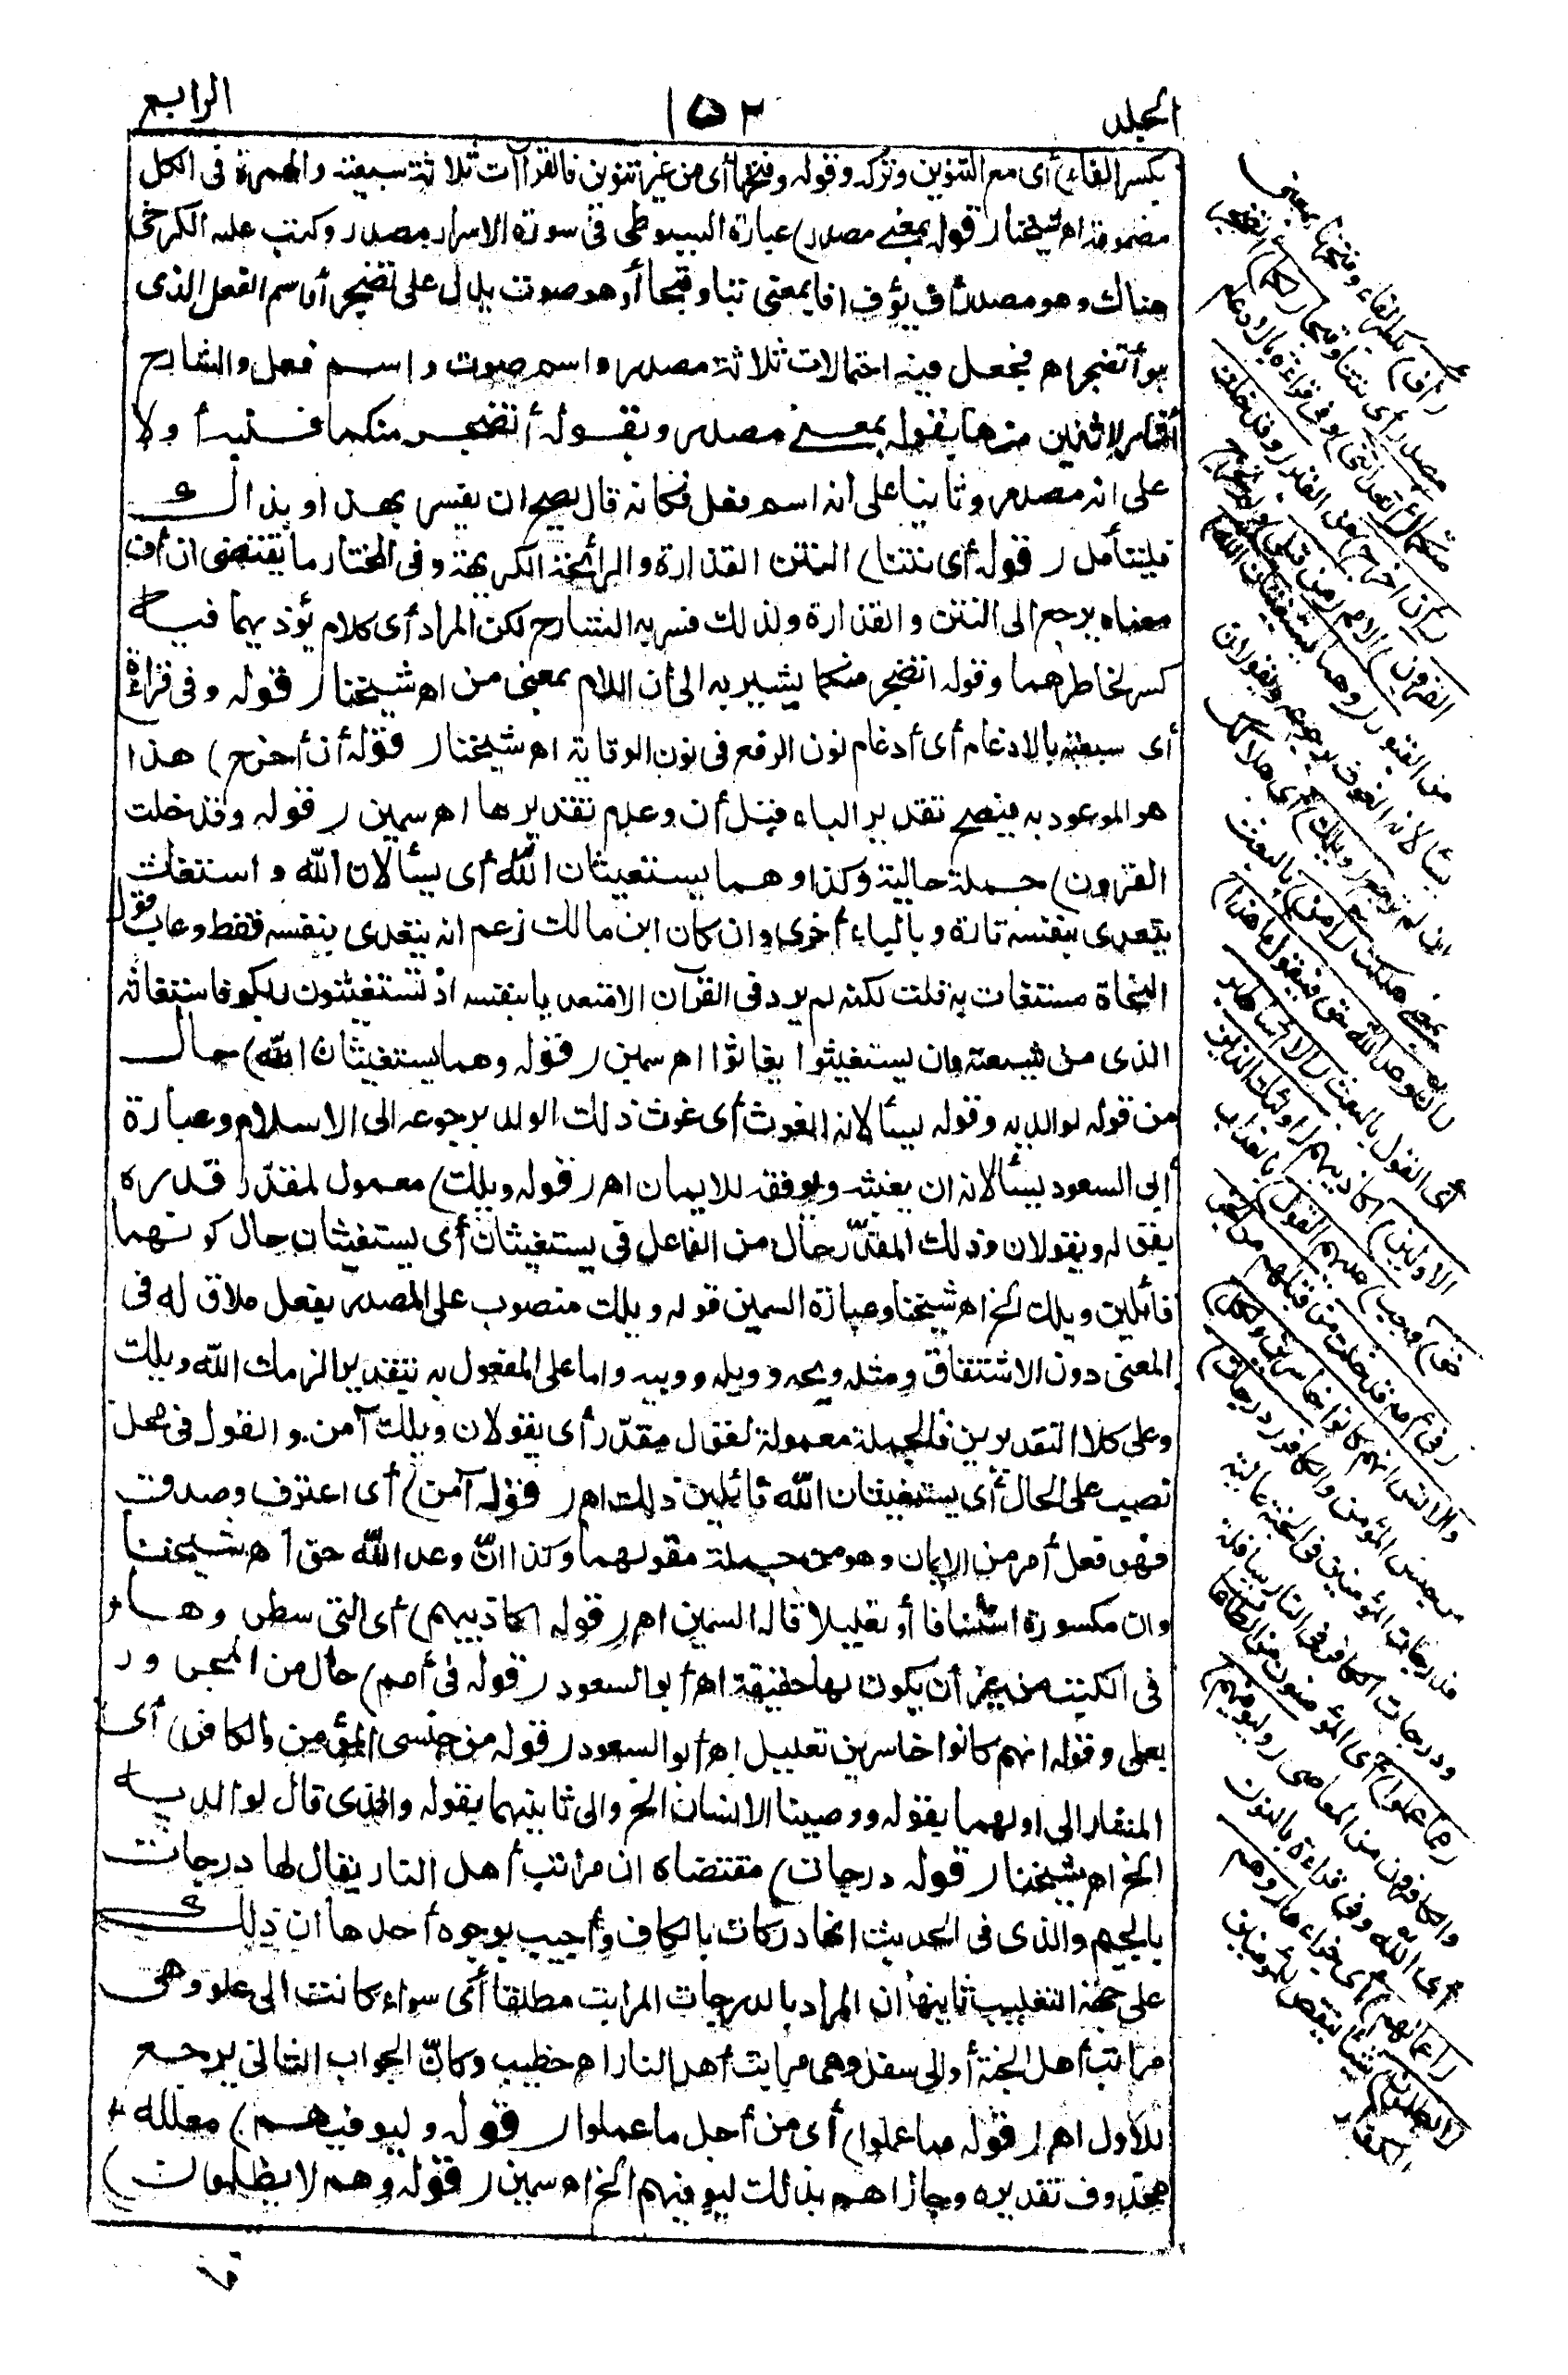 المجلد
١٥٢
الرابع
بكسر الفاء) أى مع التنوين وتركه وقوله وفتحها أى من غير تنوين فالقراآت ثلاثة سبعية والهمزة فى الكل
مضمومة اهـ شيخنا (قوله بمعنى مصدر) عبارة السيوطى فى سورة الاسراء مصدر وكتب عليه الكرخى
هناك وهو مصدر أف يؤف افا بمعنى تبا وقبحا أو هو صوت يدل على تضجر أو اسم الفعل الذى
هو أتضجر اهـ فجعل فيه احتمالات ثلاثة مصدر واسم صوت واسم فعل والشارح
أشار لاثنين منها بقوله بمعنى مصدر وبقوله أتضجر منكما فنبه أولا
على انه مصدر وثانيا على أنه اسم فعل فكانه قال يصح ان يفسر بهذا وبذاك
فليتأمل (قوله أى نتنا) النتن القذارة والرائحة الكريهة وفى المختار ما يقتضى ان أف
معناه يرجع الى النتن والقذارة ولذلك فسر به الشارح لكن المراد أى كلام يؤذيهما فيه
كسر لخاطرهما وقوله اتضجر منكما يشير به الى أن اللام بمعنى من اهـ شيخنا (قوله وفى قراءة)
أى سبعية بالادغام أى أدغام نون الرفع فى نون الوقاية اهـ شيخنا (قوله أن أخرج) هذا
هو الموعود به فيصح تقدير الباء قبل أن وعدم تقديرها اهـ سمين (قوله وقد خلت
القرون) جملة حالية وكذا وهما يستغيثان الله أى يسألان الله واستغاث
يتعدى بنفسه تارة وبالباء أخرى وان كان ابن مالك زعم انه يتعدى بنفسه فقط وعاب قول
النحاة مستغاث به قلت لكنه لم يرد فى القرآن الا متعديا بنفسه اذ تستغيثون ربكم فاستغاثه
الذى من شيعته وان يستغيثوا يغاثوا اهـ سمين (قوله وهما يستغيثان الله) حال
من قوله لوالديه وقوله يسألانه الغوث أى غوث ذلك الولد برجوعه الى الاسلام وعبارة
أبى السعود يسألانه ان يغيثه ويوفقه للايمان اهـ (قوله ويلك) معمول لمقدر قدره
بقوله ويقولان وذلك المقدّر حال من الفاعل فى يستغيثان أى يستغيثان حال كونهما
قائلين ويلك الخ اهـ شيخنا وعبارة السمين قوله ويلك منصوب على المصدر بفعل ملاق له فى
المعنى دون الاشتقاق ومثله ويحه وويله وويبه واما على المفعول به بتقدير الزمك الله ويلك
وعلى كلا التقديرين فالجملة معمولة لقول مقدّر أى يقولان ويلك آمن والقول فى محل
نصب على الحال أى يستغيثان الله قائلين ذلك اهـ (قوله آمن) أى اعترف وصدق
فهو فعل أمر من الايمان وهو من جملة مقولهما وكذا انّ وعد الله حق اهـ شيخنا
وان مكسورة استئنافا أو تعليلا قاله السمين اهـ (قوله اكاذيبهم) أى التى سطروها
فى الكتب من غير أن يكون لها حقيقة اهـ أبو السعود (قوله فى أمم) حال من المجرور
بعلى وقوله انهم كانوا خاسرين تعليل اهـ أبو السعود (قوله من جنسى المؤمن والكافر) أى
المشار الى اولهما بقوله ووصينا الانسان الخ والى ثانيهما بقوله والذى قال لوالديه
الخ اهـ شيخنا (قوله درجات) مقتضاه ان مراتب أهل النار يقال لها درجات
بالجيم والذى فى الحديث انها دركات بالكاف وأجيب بوجوه أحدها أن ذلك
على جهة التغليب ثانيها أن المراد بالدرجات المراتب مطلقا أى سواء كانت الى علو وهى
مراتب أهل الجنة أو الى سفل وهى مراتب أهل النار اهـ خطيب وكانّ الجواب الثانى يرجع
للأول اهـ (قوله مما عملوا) أى من أجل ما عملوا (قوله وليوفيهم) معلله
محذوف تقديره وجازاهم بذلك ليوفيهم الخ اهـ سمين (قوله وهم لا يظلمون)
(أف) بكسر الفاء وفتحها بمعنى
مصدر أى نتنا وقبحا (لكما) أتضجر
منكما (أتعداننى) وفى قراءة بالادغام
(أن أخرج) من القبر (وقد خلت
القرون) الامم (من قبلى) ولم تخرج
من القبور (وهما يستغيثان الله)
يسألانه الغوث برجوعه ويقولان
ان لم ترجع (ويلك) أى هلاكك
بمعنى هلكت (آمن) بالبعث
(ان وعد الله حق فيقول ما هذا)
أى القول بالبعث (الا أساطير
الاولين) أكاذيبهم (أولئك الذين
حق) وجب (عليهم القول) بالعذاب
(فى أمم قد خلت من قبلهم من الجن
والانس انهم كانوا خاسرين ولكل)
من جنس المؤمن والكافر (درجات)
فدرجات المؤمنين فى الجنة عالية
ودرجات الكافر فى النار سافلة
(مما عملوا) أى المؤمنون من الطاعات
والكافرون من المعاصى (وليوفيهم)
أى الله وفى قراءة بالنون
(أعمالهم) أى جزاءها (وهم
لا يظلمون) شيئا ينقص للمؤمنين